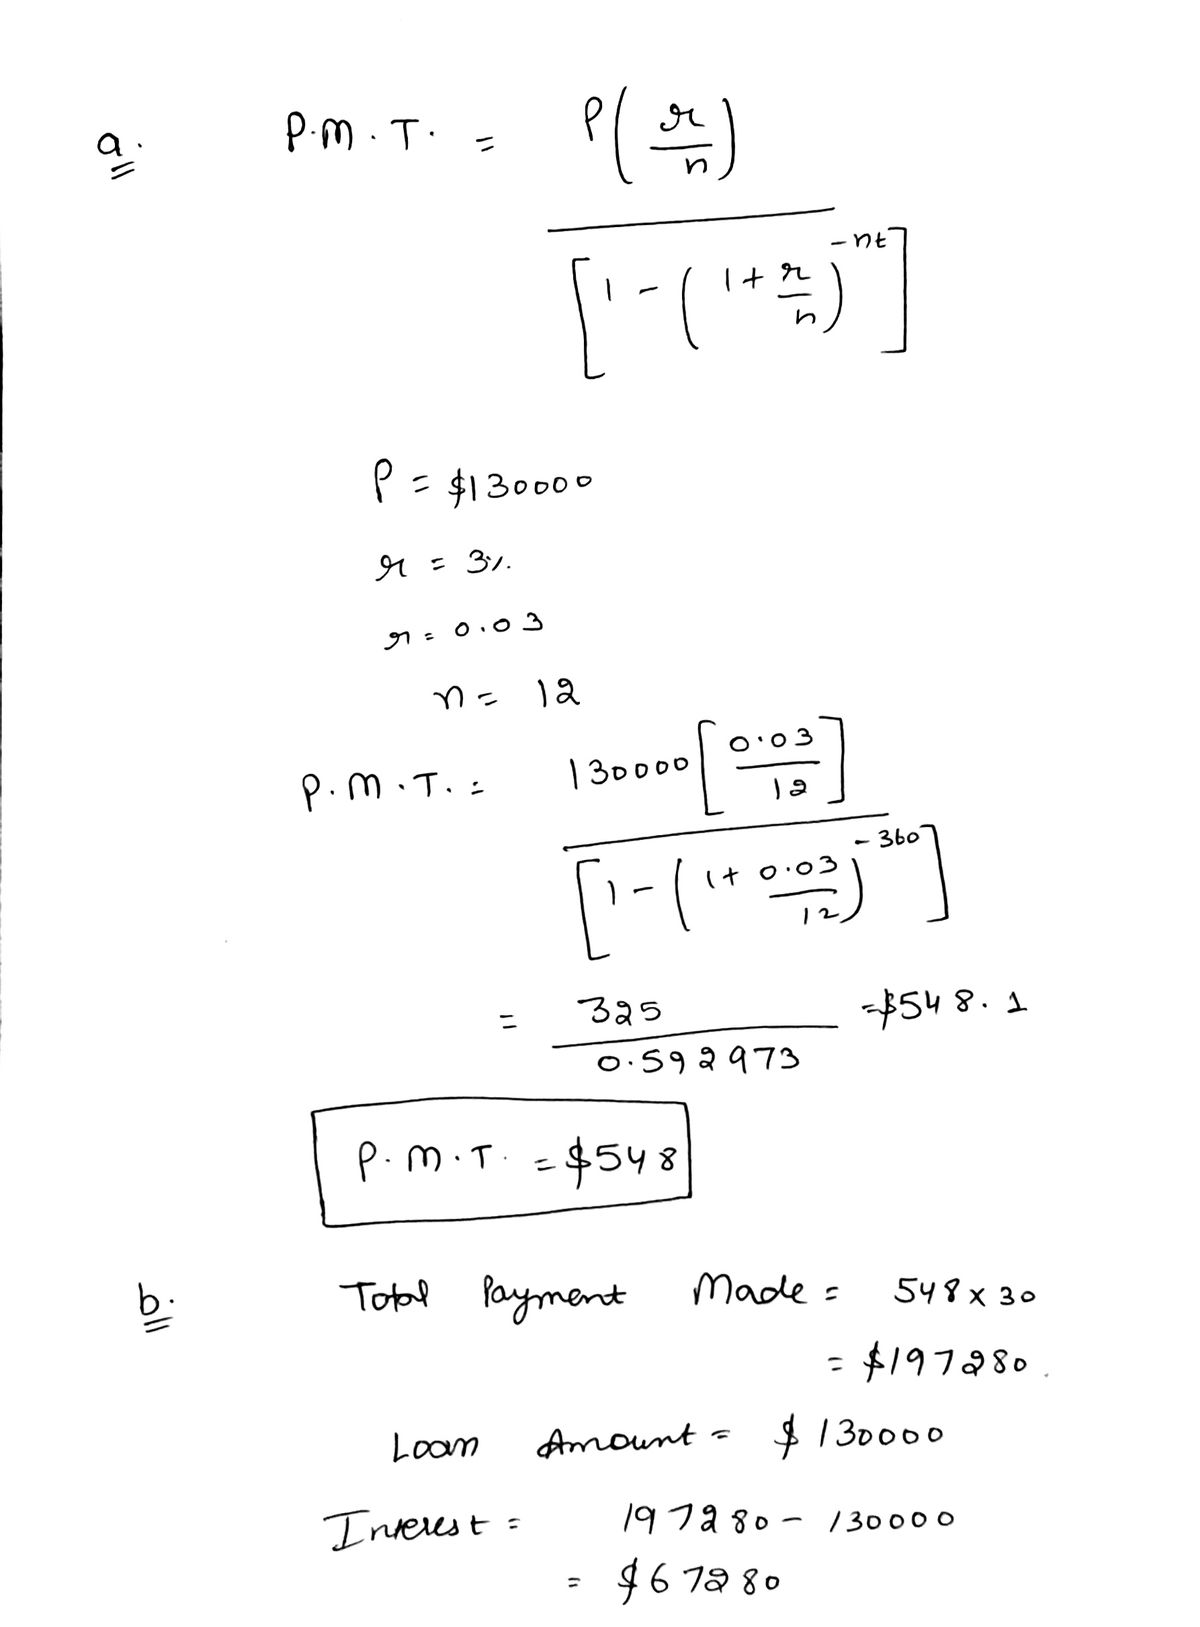 a. P.M.T. = P(r/n)
[1 - (1 + r/n)^-nt]
P = $130000
r = 3%
r = 0.03
n = 12
P.M.T. = 130000[0.03/12]
[1 - (1 + 0.03/12)^-360]
= 325/0.592973 = $548.1
P.M.T. = $548
b. Total Payment Made = 548 x 30
= $197280.
Loan Amount = $130000
Interest = 197280 - 130000
= $67280